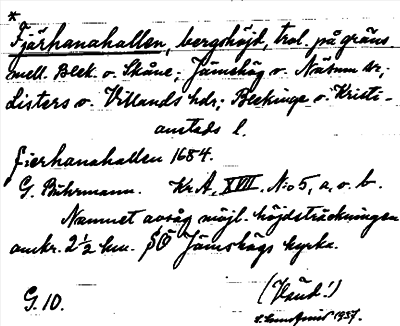 *
Fjärhanahallen, bergshöjd, trol. på gräns
mell. Blek. o. Skåne; Jämshög o. Näsum sr,
Listers o. Villands hdr; Blekinge o. Kristi-
anstads l.
fierhanahallen 1684.
G. Buhrmann. Kr. A. XVII. No 5, a, o. b.
Namnet avsåg möjl. höjdsträckningen
omkr. 2½ km. SÖ Jämshögs kyrka.
(Häud!)
G. 10.
1957.